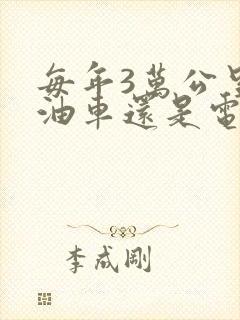 每年3萬公里
油車還是電
李成剛